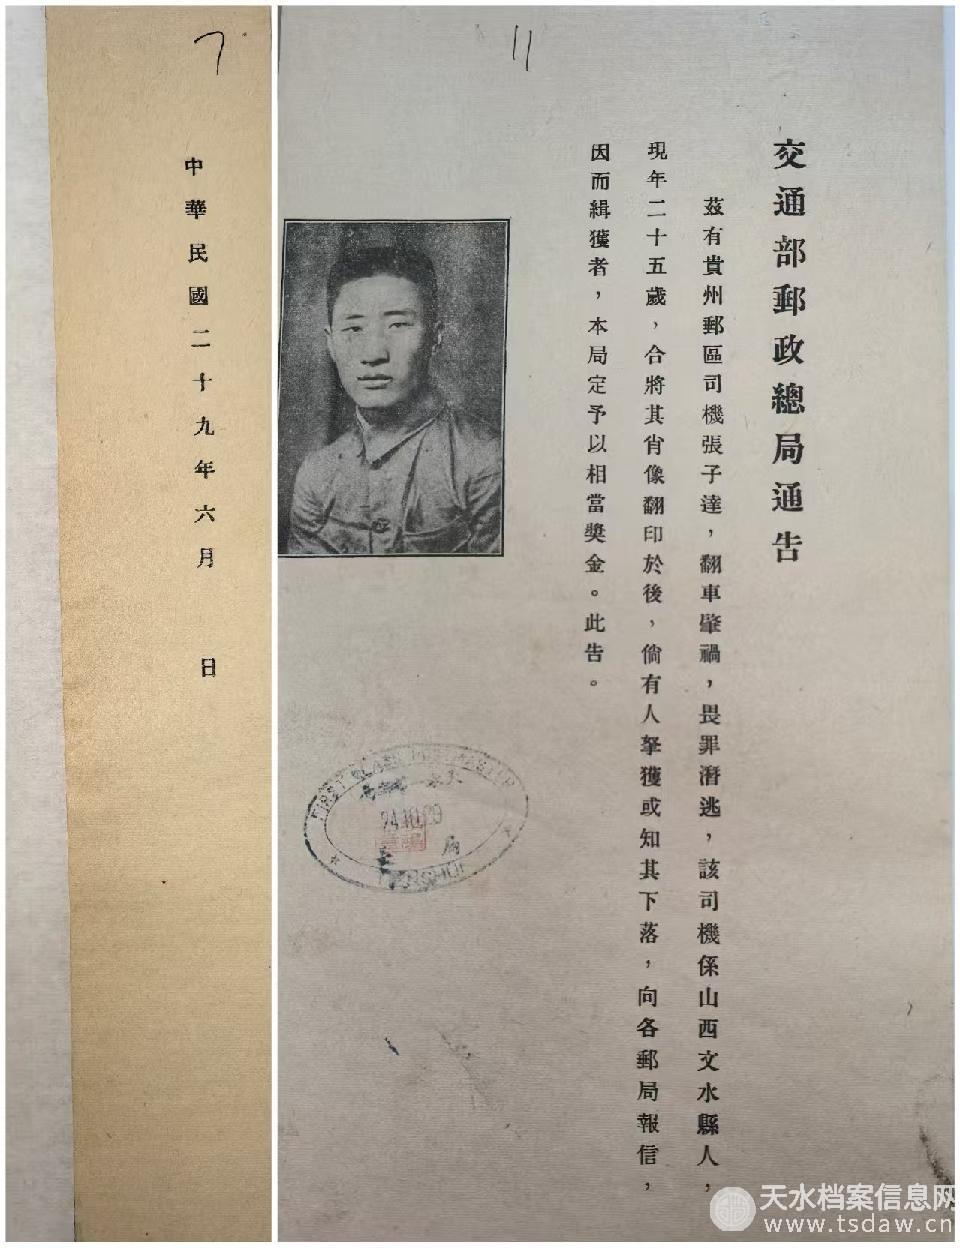 交通部郵政總局通告
茲有貴州郵區司機張子達，翻車肇禍，畏罪潛逃，該司機係山西文水縣人，
現年二十五歲，合將其肖像翻印於後，倘有人拏獲或知其下落，向各郵局報信，
因而緝獲者，本局定予以相當獎金。此告。
11
FIRST CLASS
局
中華民國二十九年六月 日
天水档案信息网
www.tsdaw.cn